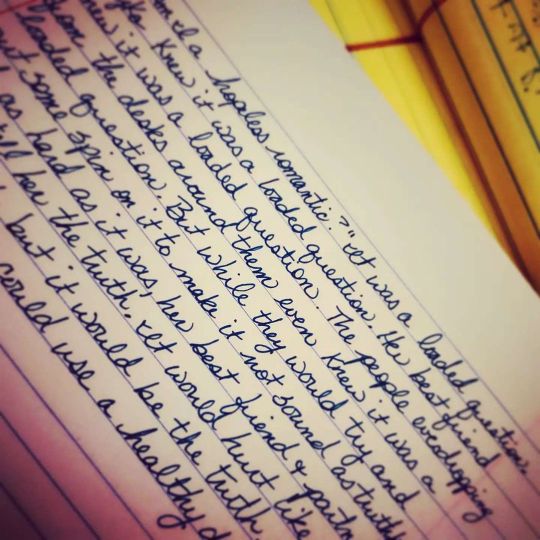 I a hopeless romantic?" It was a loaded question.
knew it was a loaded question. Her best friend
knew it was a loaded question. The people evedropping
from the desks around them even knew it was a
loaded question. But while they would try and
put some spin on it to make it not sound as truth
as hard as it was, her best friend & partn
tell her the truth. It would hurt like
but it would be the truth.
could use a healthy d